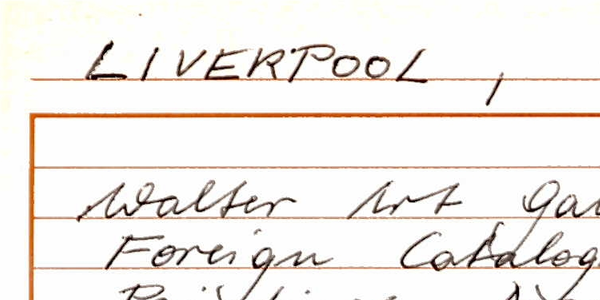 LIVERPOOL,
Walter Art Gal
Foreign Catalog